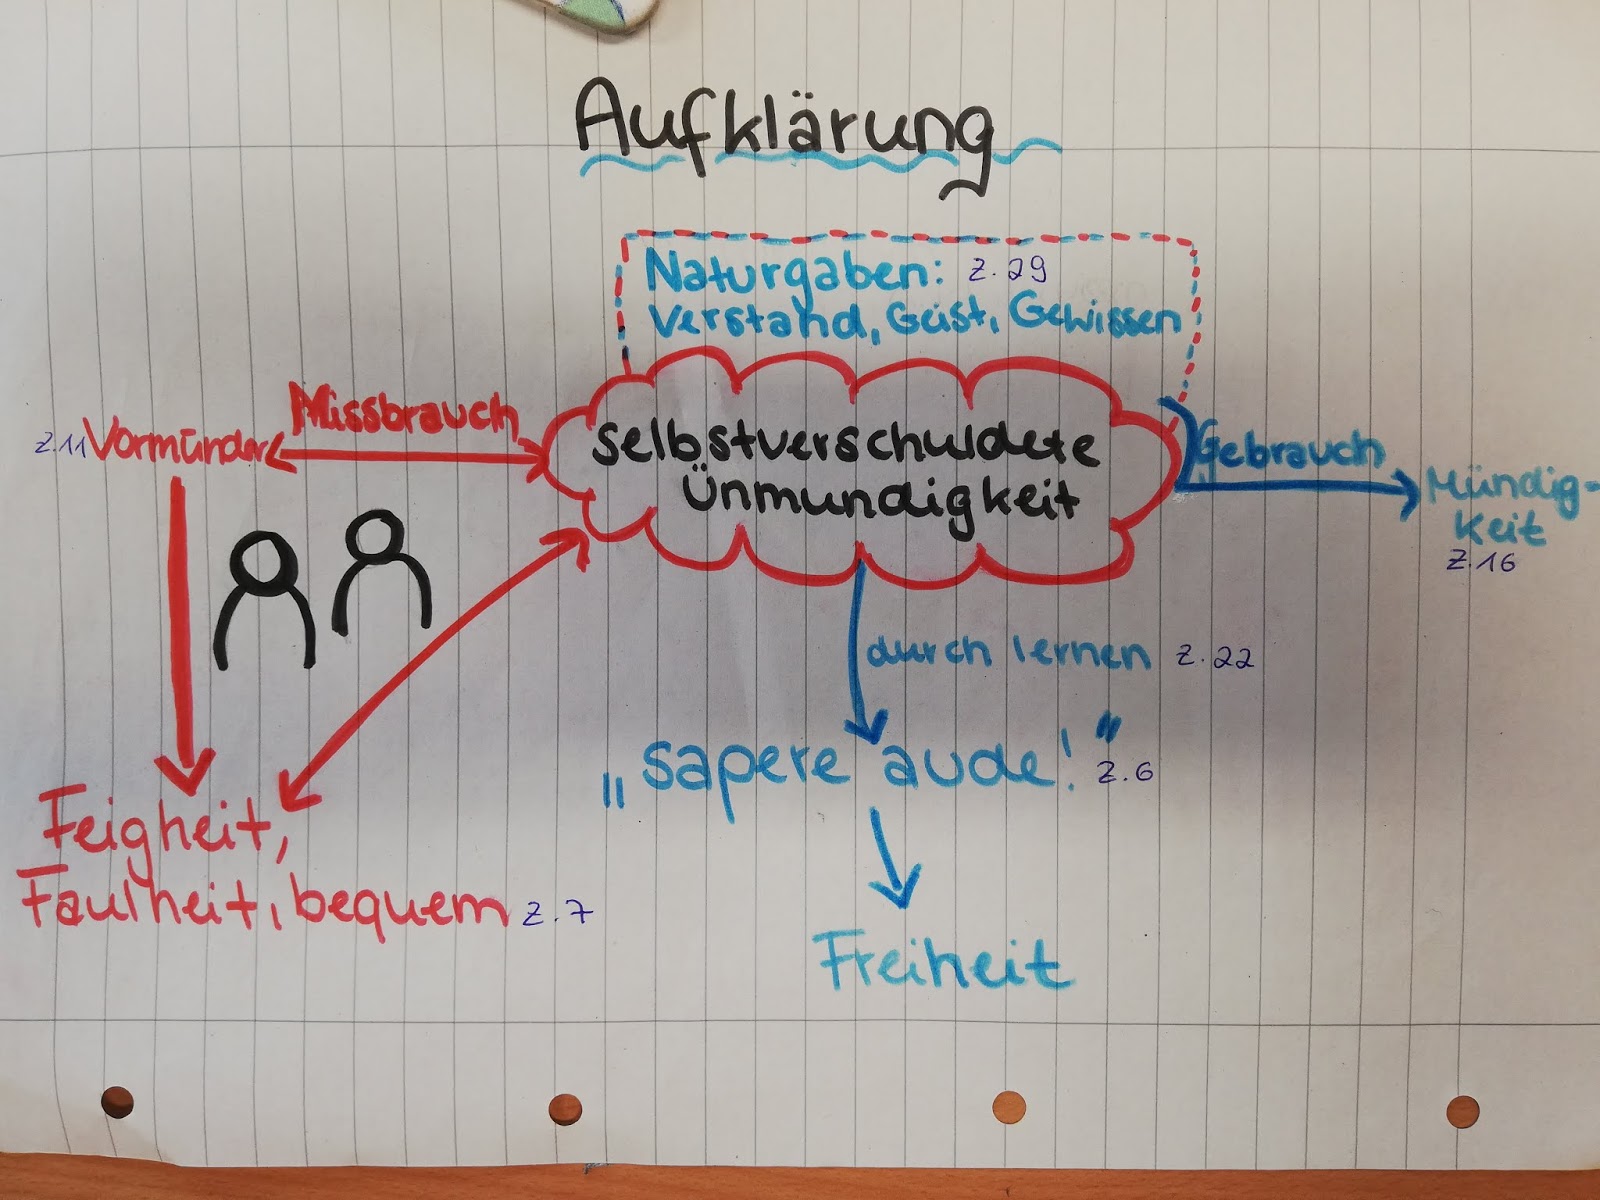 Aufklärung
Naturgaben: Z.29
Verstand, Geist, Gewissen
Missbrauch
Z.11 Vormünder
selbstverschuldete
Ünmundigkeit
Gebrauch
Mündig-
keit
Z.16
durch lernen Z.22
„sapere aude!" Z.6
Feigheit,
Faulheit, bequem Z.7
Freiheit